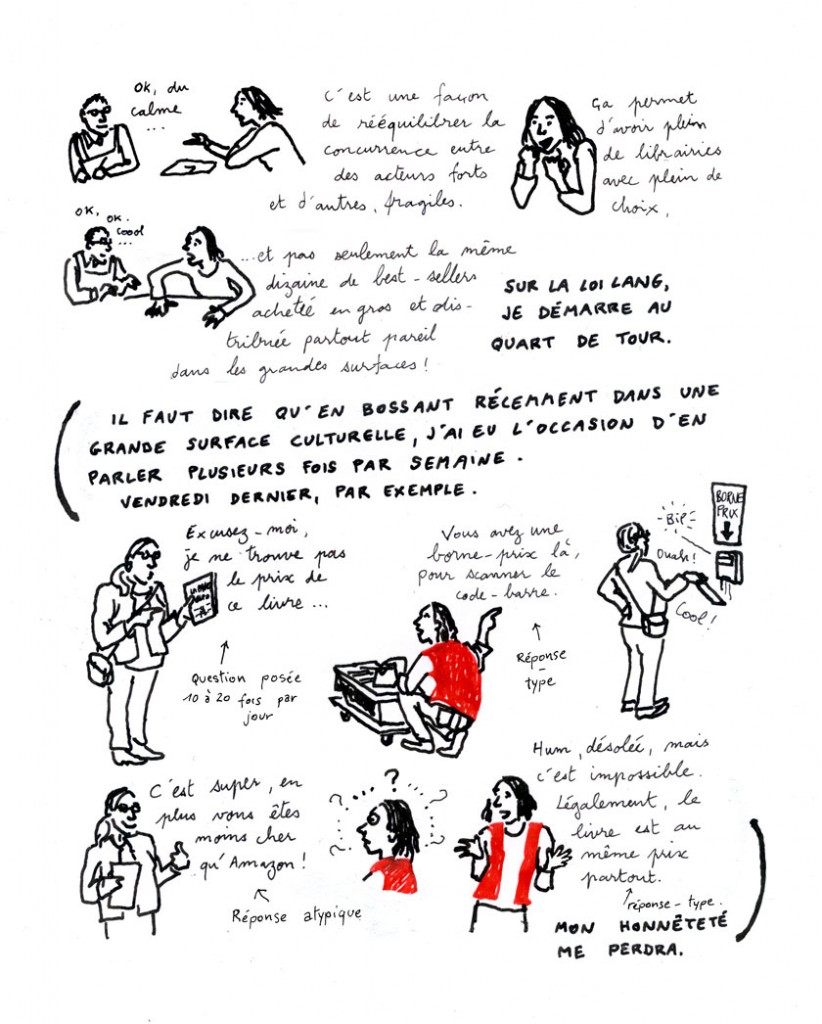 OK, du
calme
...
C'est une façon
de rééquilibrer la
concurrence entre
des acteurs forts
et d'autres, fragiles.
Ça permet
d'avoir plein
de librairies
avec plein de
choix,
OK, OK.
cool
...
...et pas seulement la même
dizaine de best-sellers
acheté en gros et dis-
tribuée partout pareil
dans les grandes surfaces !
SUR LA LOI LANG,
JE DÉMARRE AU
QUART DE TOUR.
IL FAUT DIRE QU'EN BOSSANT RÉCEMMENT DANS UNE
GRANDE SURFACE CULTURELLE, J'AI EU L'OCCASION D'EN
PARLER PLUSIEURS FOIS PAR SEMAINE.
VENDREDI DERNIER, PAR EXEMPLE.
Excusez-moi,
je ne trouve pas
le prix de
ce livre...
Question posée
10 à 20 fois par
jour
Vous avez une
borne-prix là,
pour scanner le
code-barre.
Réponse
-type
BORNE
PRIX
BiP
Ouah!
Cool!
C'est super, en
plus vous êtes
moins cher
qu'Amazon!
Réponse atypique
? ? ? ?
Hum, désolée, mais
c'est impossible.
Légalement, le
livre est au
même prix
partout.
réponse-type.
MON HONNÊTETÉ
ME PERDRA.